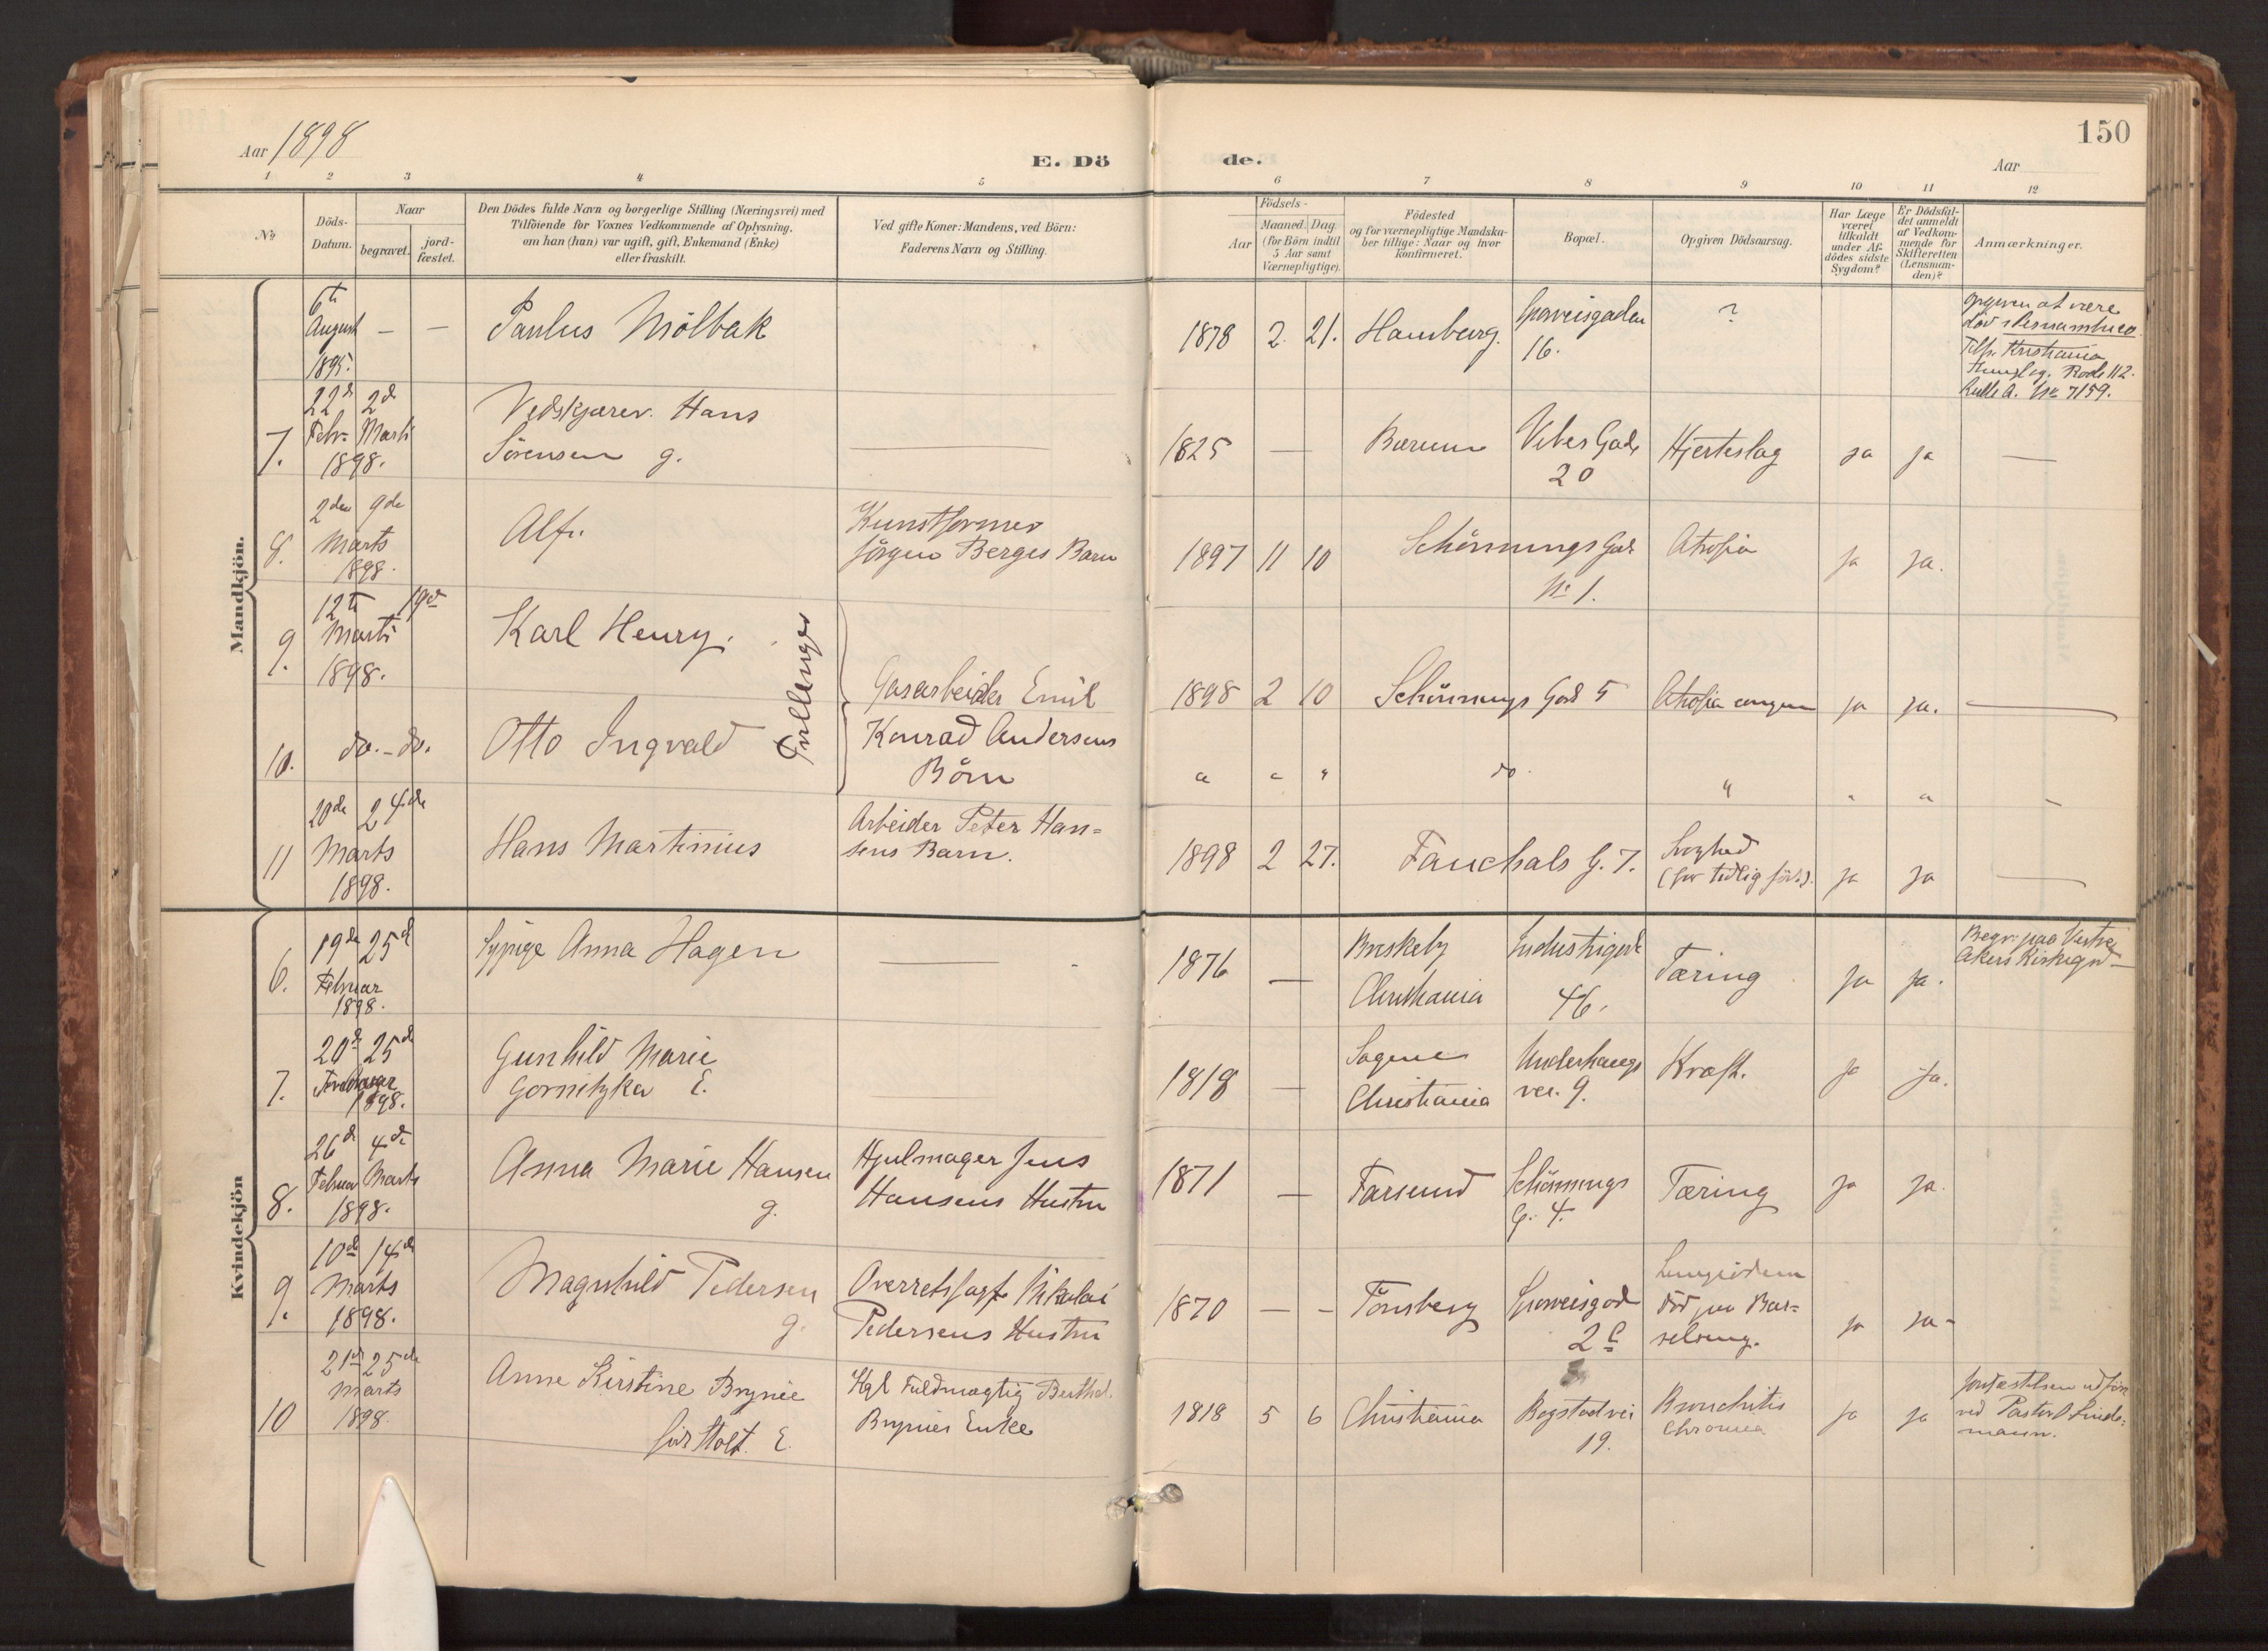 Aar 1898
E. Dö
de.
150
Aar
1 2 3 4 5 6 7 8 9 10 11 12
No
Döds-
Datum.
Naar
begravet.
jord-
fæstet.
Den Dödes fulde Navn og borgerlige Stilling (Næringsvei) med
Tilföiende for Voxnes Vedkommende af Oplysning,
om han (hun) var ugift, gift, Enkemand (Enke)
eller fraskilt.
Ved gifte Koner: Mandens, ved Börn:
Faderens Navn og Stilling.
Födsels-
Aar
Maaned. Dag.
(for Börn indtil
5 Aar samt
Værnepligtige).
Födested
og for værnepligtige Mandska-
ber tillige: Naar og hvor
konfirmeret.
Bopæl.
Opgiven Dödsaarsag.
Har Læge
været
tilkaldt
under Af-
dödes sidste
Sygdom?
Er Dödsfal-
det anmeldt
af Vedkom-
mende for
Skifteretten
(Lensman-
den)?
Anmærkninger.
Mandkjön.
6te
August — —
1895.
Paulus Mölbak
1878 2. 21. Hamburg. Sporveisgaden
16.
?
Opgiven at være
död i Pernambuco
Kristiania
Rode 112.
Rulle A. No 7159.
7. 22de 2de
Febr. Marts
1898.
Vedskjærer. Hans
Sörensen g.
—
1825 — Bærum Vibes Gade
20
Hjerteslag ja ja —
8. 2den 9de
Marts
1898.
Alf.
Kunstformer
Jörgen Berges Barn
1897 11 10 Schönnings Gad
No 1.
Atrofia ja ja.
9. 12te 19de
Marts
1898.
Karl Henry.
Tvillinger
Gasarbeider Emil
Konrad Andersens
Börn
1898 2 10 Schönnings Gad 5 Atrofia congen ja ja. —
10. do. - do.
Otto Ingvald
" " " do. " " " -
11 20de 24de
Marts
1898.
Hans Martinius
Arbeider Peter Han=
sens Barn.
1898 2 27. Fauchals G. 7. Svaghed
(for tidlig föd.).
ja ja —
Kvindekjön
6. 19de 25de
Februar
1898.
Sypige Anna Hagen
—
1876 — Briskeby
Christiania
Industrigade
46.
Tæring ja ja.
Begr. paa Vestre
Akers Kirkegrd
7. 20de 25de
Februar
1898.
Gunhild Marie
Gornitzka E.
1818 — Sagene
Christiania
Underhaugs
vei. 9.
Kræft. ja ja.
8. 26de 4de
Februar Marts
1898.
Anna Marie Hansen
g.
Hjulmager Jens
Hansens Hustru
1871 — Farsund Schönnings
G. 4.
Tæring ja ja.
9. 10de 14de
Marts
1898.
Magnhild Pedersen
g.
Overretssagf. Nikolai
Pedersens Hustru
1870 — - Tönsberg Sporveisgad
2 c
Lungeödem
död paa Bar=
selseng.
ja ja-
10 21de 25de
Marts
1898.
Anne Kirstine Brynie
föd Stolt. E.
Kgl Fuldmægtig Berthel
Brynies Enke
1818 5 6 Christiania Bogstadvei
19.
Bronchitis
Chronica
ja ja
Jordfæstelsen udför
ved Pastor Linde=
mann.